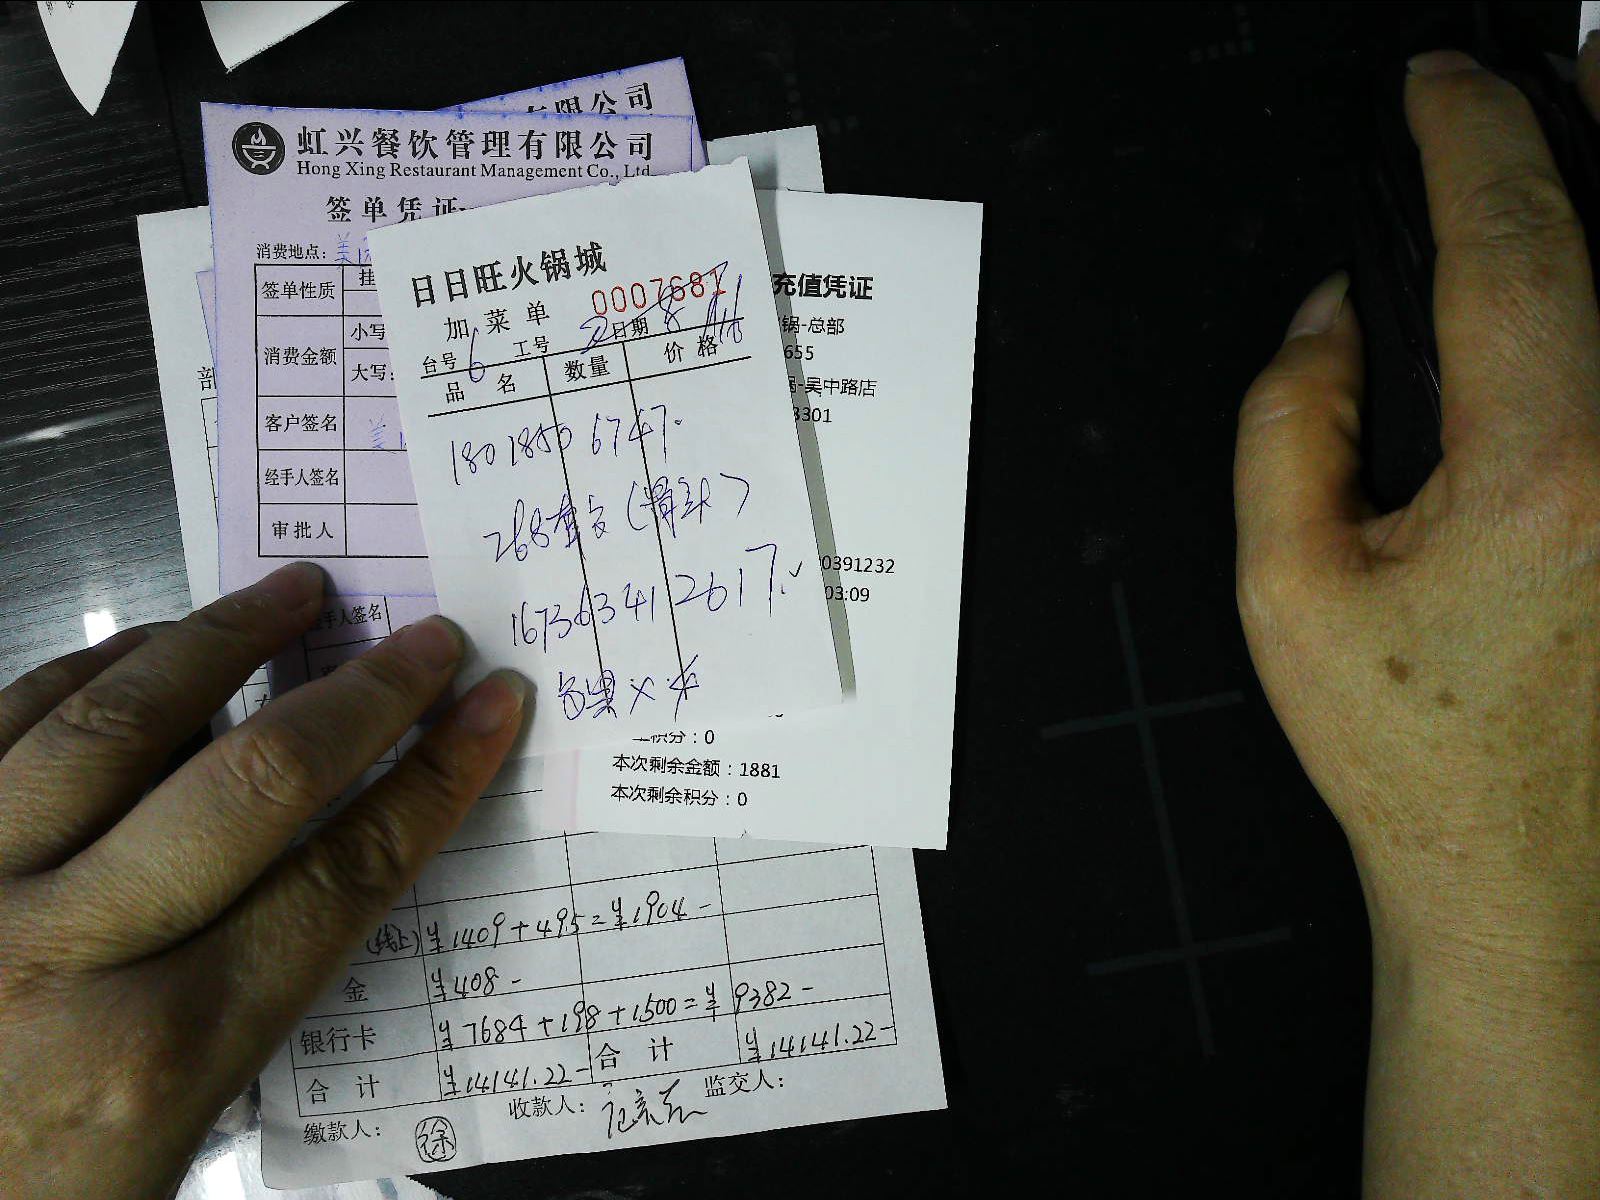 有限公司
虹兴餐饮管理有限公司
Hong Xing Restaurant Management Co., Ltd.
签单凭证
消费地点:美
签单性质 挂
消费金额 小写
大写:
客户签名 美
经手人签名
审批人
经手人签名
部
日日旺火锅城
加菜单 0007681
台号 6 工号 日期
品名 数量 价格
180 1850 6747.
268套
167363412617.
充值凭证
锅-总部
655
锅-吴中路店
3301
0391232
03:09
积分:0
本次剩余金额:1881
本次剩余积分:0
(线上) ¥1409+495=¥1904-
金 ¥408-
银行卡 ¥7684+198+1500=¥9382-
合计 ¥14141.22- 合计 ¥14141.22-
缴款人: 徐 收款人: 监交人: